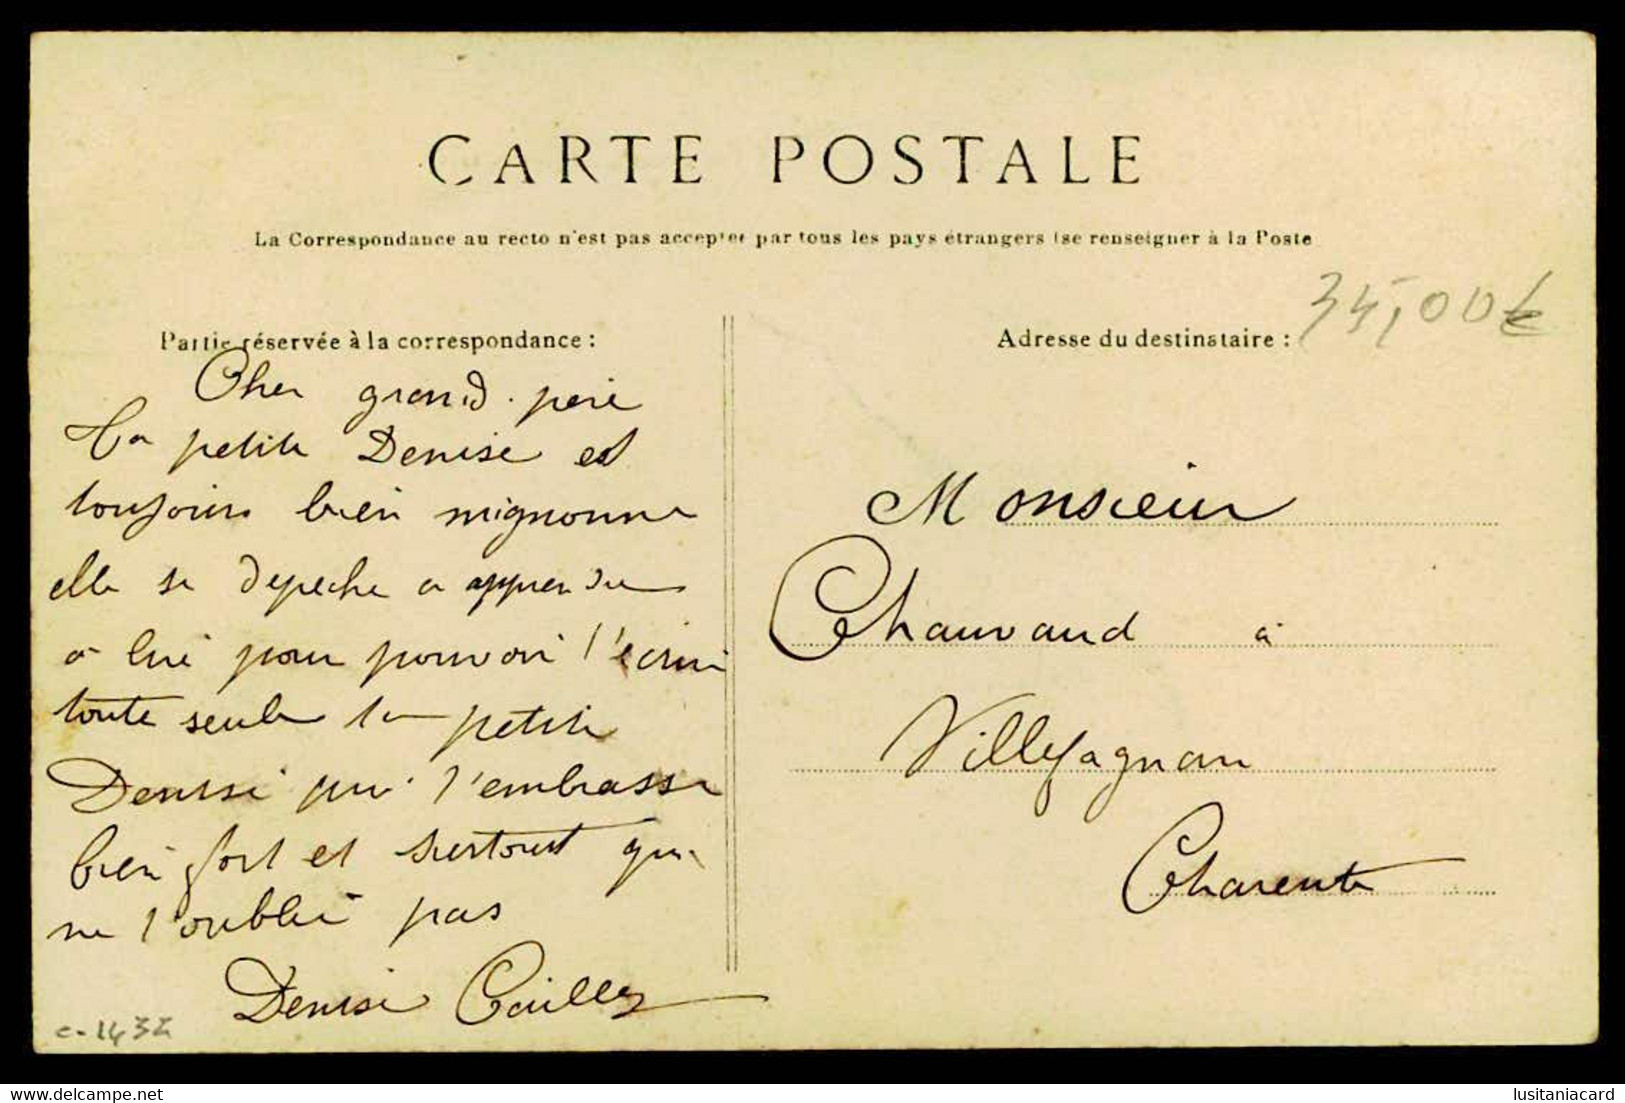 CARTE POSTALE
La Correspondance au recto n'est pas acceptee par tous les pays étrangers (se renseigner à la Poste
34,00€
Partie réservée à la correspondance :
Adresse du destinataire :
Cher grand-père
Ta petite Denise est
toujours bien mignonne
elle se depeche a apprendre
a lire pour pouvoir t'écrire
toute seule ta petite
Denise qui t'embrasse
bien fort et surtout qui
ne t'oublie pas
Denise
Monsieur
Chauvaud à
Villefagnan
Charente
c-1432
lusitaniacard